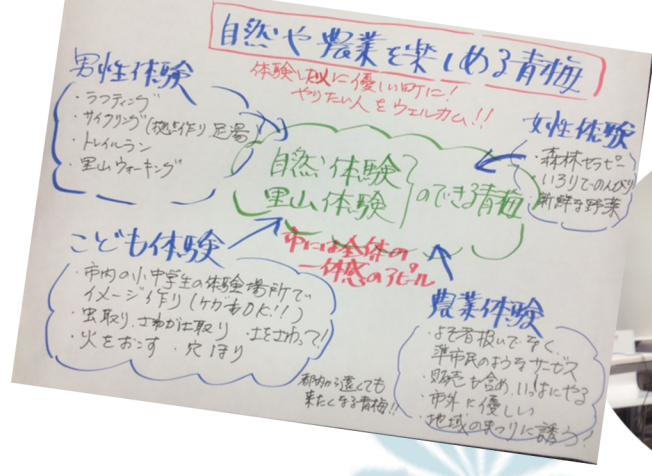 自然や農業を楽しめる青梅
体験したい人に優しい町に!
やりたい人をウェルカム!!
男性体験
・ラフティング
・サイクリング(拠点作り 足湯)
・トレイルラン
・里山ウォーキング
女性体験
・森林セラピー
・いろりでのんびり
・新鮮な野菜
自然体験
里山体験
のできる青梅
市には全体の
一体感のアピール
こども体験
・市内の小中学生の体験場所で
イメージ作り(ケガもOK!!)
・虫取り、さわがに取り ・土をさわって!
・火をおこす ・穴ほり
農業体験
・よそ者扱いでなく、
準市民のようなサービス
・販売も含め、いっしょにやる
・市外に優しい
・地域のまつりに誘う!
都内から遠くても
来たくなる青梅!!